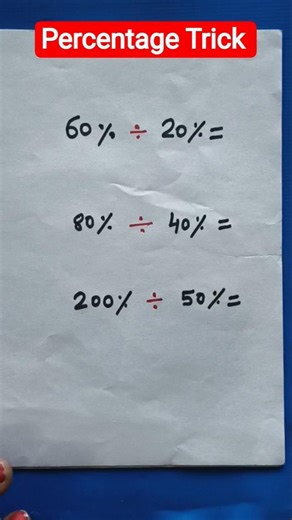 Percentage Trick
60% ÷ 20% =
80% ÷ 40% =
200% ÷ 50% =